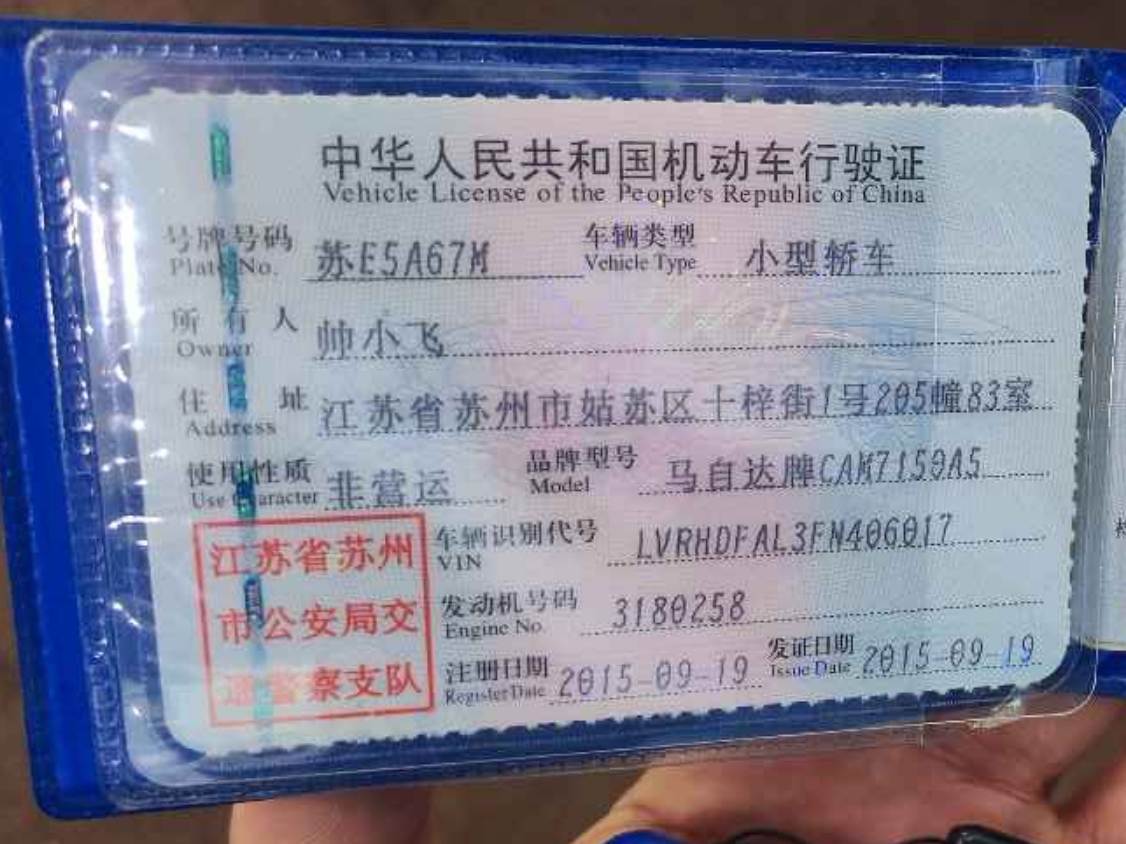 中华人民共和国机动车行驶证
Vehicle License of the People's Republic of China
号牌号码 苏E5A67M 车辆类型 小型轿车
Plate No. Vehicle Type
所有人 帅小飞
Owner
住址 江苏省苏州市姑苏区十梓街1号205幢83室
Address
使用性质 非营运 品牌型号 马自达牌CAM7150A5
Use Character Model
车辆识别代号 LVRHDFAL3FN406017
VIN
发动机号码 3180258
Engine No.
注册日期 2015-09-19 发证日期 2015-09-19
Register Date Issue Date
江苏省苏州
市公安局交
通警察支队